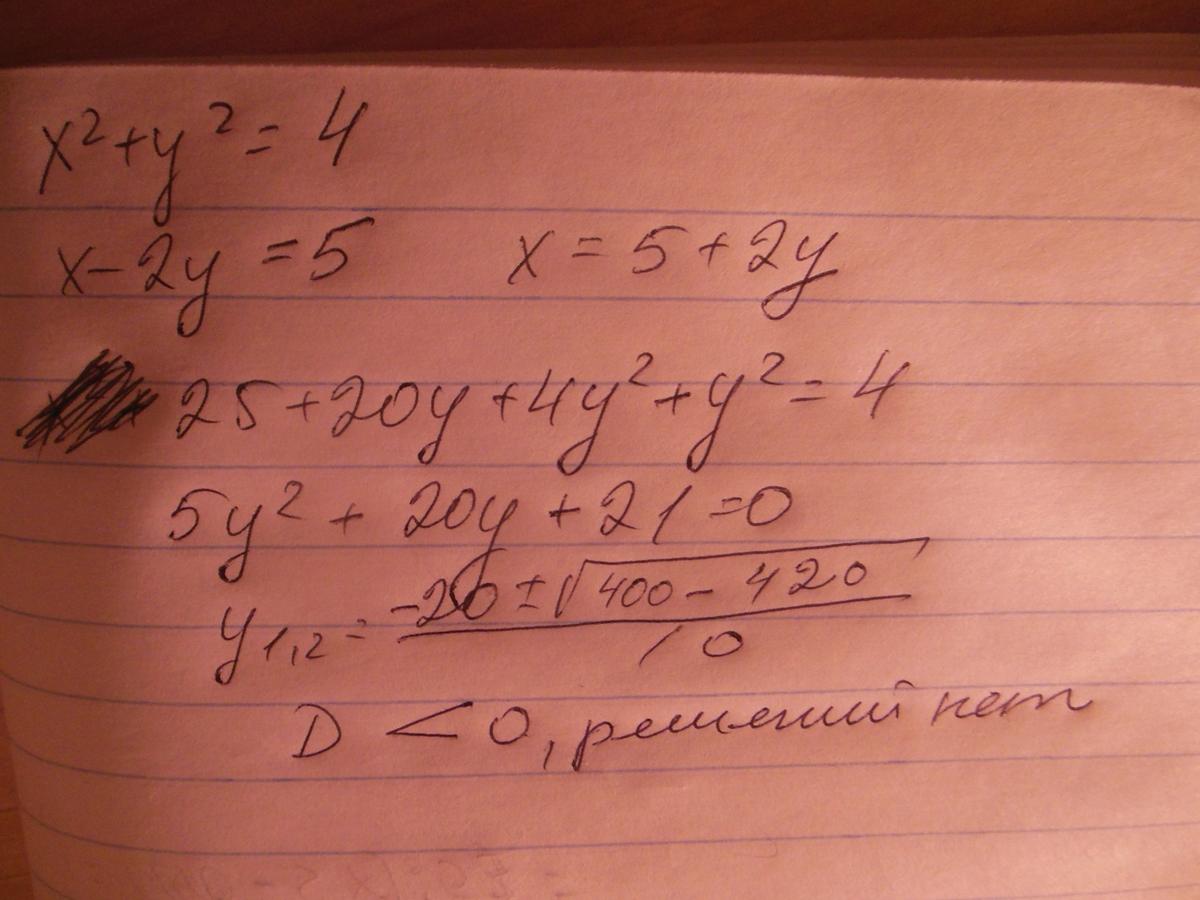 x² + y² = 4
x - 2y = 5 x = 5 + 2y
25 + 20y + 4y² + y² = 4
5y² + 20y + 21 = 0
y₁,₂ = (-20 ± √(400 - 420)) / 10
D < 0, решений нет